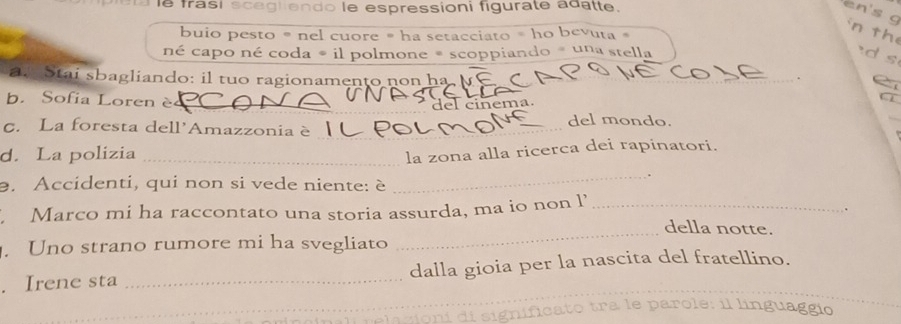 le frasi scegliendo le espressioni figurate adatte.
buio pesto * nel cuore * ha setacciato * ho bevuta *
né capo né coda * il polmone * scoppiando * una stella
a. Stai sbagliando: il tuo ragionamento non ha NÈ CAPO NÈ CODE.
b. Sofia Loren è UNA STELLA del cinema.
c. La foresta dell'Amazzonia è IL POLMONE del mondo.
d. La polizia la zona alla ricerca dei rapinatori.
e. Accidenti, qui non si vede niente: è.
Marco mi ha raccontato una storia assurda, ma io non l'.
Uno strano rumore mi ha svegliato della notte.
Irene sta dalla gioia per la nascita del fratellino.
relazioni di significato tra le parole: il linguaggio